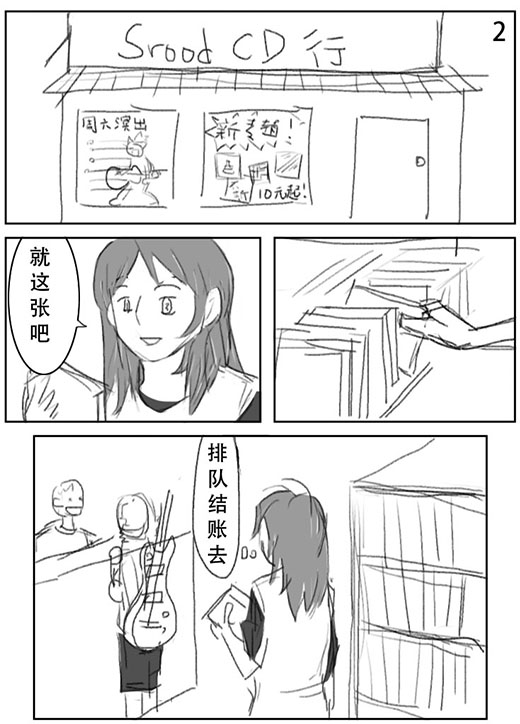 2
Srood CD 行
周六演出
新专题！
10元起！
就这张吧
排队结账去